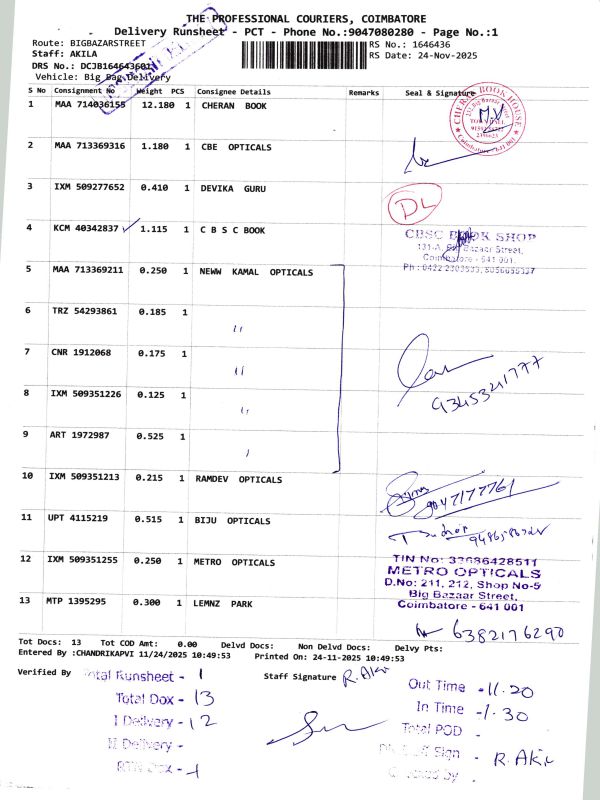 THE PROFESSIONAL COURIERS, COIMBATORE
Delivery Runsheet - PCT - Phone No.:9047080280 - Page No.:1
Route: BIGBAZARSTREET RS No.: 1646436
Staff: AKILA RS Date: 24-Nov-2025
DRS No.: DCJB164643601
Vehicle: Big Bag Delivery
S No Consignment No Weight PCS Consignee Details Remarks Seal & Signature
1 MAA 714036155 12.180 1 CHERAN BOOK
CHERAN BOOK HOUSE
Coimbatore
2 MAA 713369316 1.180 1 CBE OPTICALS
3 IXM 509277652 0.410 1 DEVIKA GURU DL
4 KCM 40342837 1.115 1 C B S C BOOK
CBSC BOOK SHOP
131-A, Big Bazaar Street,
Coimbatore - 641 001.
5 MAA 713369211 0.250 1 NEWW KAMAL OPTICALS
6 TRZ 54293861 0.185 1 "
7 CNR 1912068 0.175 1 "
8 IXM 509351226 0.125 1 "
9345341777
9 ART 1972987 0.525 1
10 IXM 509351213 0.215 1 RAMDEV OPTICALS
9047177761
11 UPT 4115219 0.515 1 BIJU OPTICALS
12 IXM 509351255 0.250 1 METRO OPTICALS
TIN No: 33686428511
METRO OPTICALS
D.No: 211, 212, Shop No-5
Big Bazaar Street,
Coimbatore - 641 001
13 MTP 1395295 0.300 1 LEMNZ PARK
6382176290
Tot Docs: 13 Tot COD Amt: 0.00 Delvd Docs: Non Delvd Docs: Delvy Pts:
Entered By :CHANDRIKAPVI 11/24/2025 10:49:53 Printed On: 24-11-2025 10:49:53
Verified By Staff Signature R. Aki
Total Runsheet - 1
Total Dox - 13
I Delivery - 12
II Delivery -
RTN Dox - 1
Out Time - 11.20
In Time - 1.30
Total POD -
Sign - R. Aki